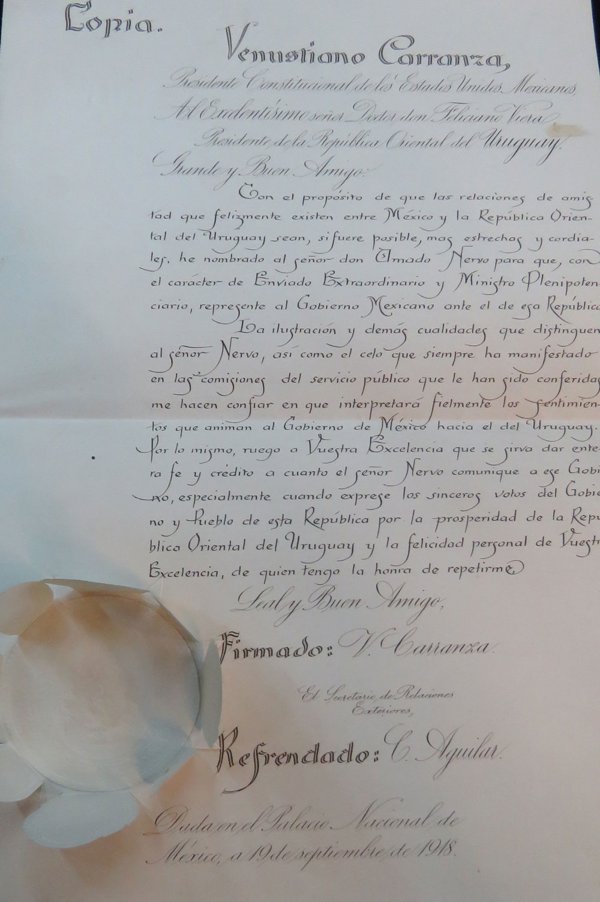 Copia.
Venustiano Carranza,
Presidente Constitucional de los Estados Unidos Mexicanos
Al Excelentísimo señor Doctor don Feliciano Viera
Presidente de la República Oriental del Uruguay.
Grande y Buen Amigo:
Con el propósito de que las relaciones de amis
tad que felizmente existen entre México y la República Orien-
tal del Uruguay sean, si fuere posible, mas estrechas y cordia-
les, he nombrado al señor don Amado Nervo para que, con
el carácter de Enviado Extraordinario y Ministro Plenipoten
ciario, represente al Gobierno Mexicano ante el de esa República
La ilustración y demás cualidades que distinguen
al señor Nervo, así como el celo que siempre ha manifestado
en las comisiones del servicio público que le han sido conferidas
me hacen confiar en que interpretará fielmente los sentimien-
tos que animan al Gobierno de México hacia el del Uruguay.
Por lo mismo, ruego a Vuestra Excelencia que se sirva dar ente-
ra fe y crédito a cuanto el señor Nervo comunique a ese Gobi
no, especialmente cuando exprese los sinceros votos del Gobie
no y Pueblo de esta República por la prosperidad de la Repú
blica Oriental del Uruguay y la felicidad personal de Vuestr
Excelencia, de quien tengo la honra de repetirme
Leal y Buen Amigo,
Firmado: V. Carranza.
El Secretario de Relaciones
Exteriores,
Refrendado: C. Aguilar.
Dada en el Palacio Nacional de
México, a 19 de septiembre de 1918.